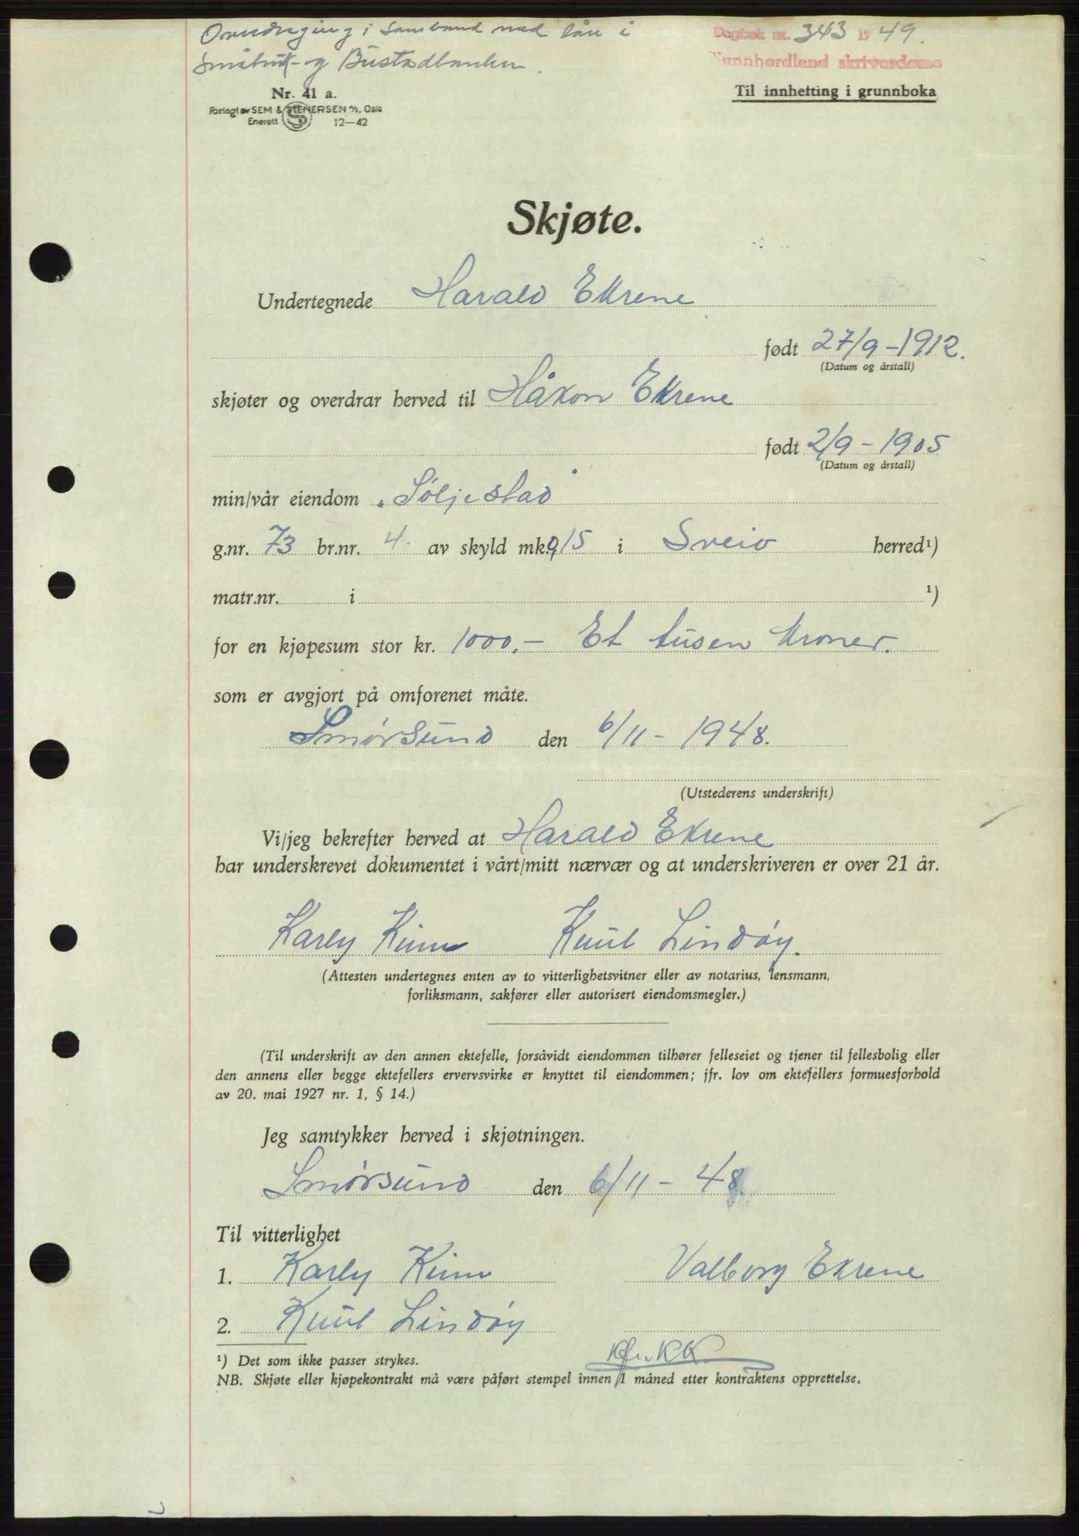 Overdraging i Samband med lån i
Småbruk- og Bustadbanken.
Dagbok nr. 343 19 49.
Sunnhordland skrivardøme
Nr. 41 a.
Forlagt av SEM & STENERSEN A/S, Oslo
Enerett 12—42
Til innhefting i grunnboka
Skjøte.
Undertegnede Harald Ekrene
født 27/9-1912.
(Datum og årstall)
skjøter og overdrar herved til Håkon Ekrene
født 2/9-1905
(Datum og årstall)
min/vår eiendom "Søljestad"
g.nr. 73 br.nr. 4. av skyld mk. 0,15 i Sveio herred¹)
matr.nr. i ¹)
for en kjøpesum stor kr. 1000,- Et tusen kroner.
som er avgjort på omforenet måte.
Smørsund den 6/11-1948.
(Utstederens underskrift)
Vi/jeg bekrefter herved at Harald Ekrene
har underskrevet dokumentet i vårt/mitt nærvær og at underskriveren er over 21 år.
Karly Kinn Knut Lindøy.
(Attesten undertegnes enten av to vitterlighetsvitner eller av notarius, lensmann,
forliksmann, sakfører eller autorisert eiendomsmegler.)
(Til underskrift av den annen ektefelle, forsåvidt eiendommen tilhører felleseiet og tjener til fellesbolig eller
den annens eller begge ektefellers ervervsvirke er knyttet til eiendommen; jfr. lov om ektefellers formuesforhold
av 20. mai 1927 nr. 1, § 14.)
Jeg samtykker herved i skjøtningen.
Smørsund den 6/11-48.
Til vitterlighet
1. Karly Kinn Valborg Ekrene
2. Knut Lindøy
¹) Det som ikke passer strykes.
NB. Skjøte eller kjøpekontrakt må være påført stempel innen 1 måned etter kontraktens opprettelse.